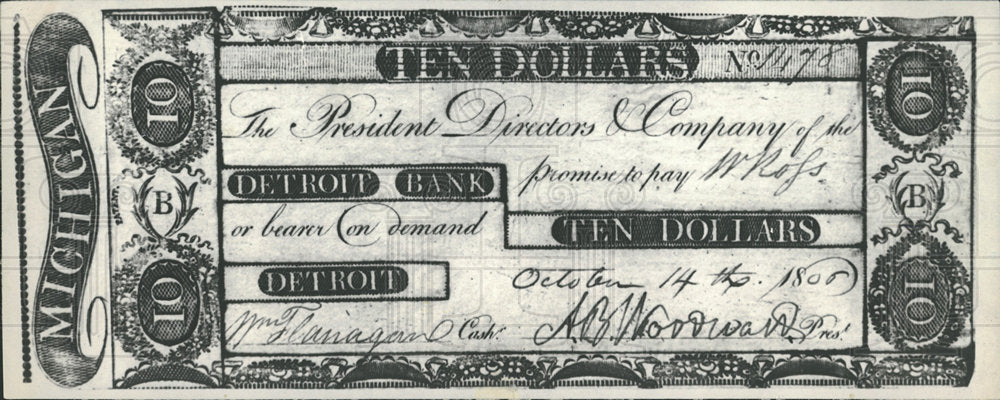 MICHIGAN
TEN DOLLARS No. 1478
10
10
The President Directors & Company of the
DETROIT BANK promise to pay W Ross
or bearer on demand TEN DOLLARS
DETROIT October 14th. 1806
Wm Flanagan Cashr. A B Woodward Prest
B
B
PATENT
10
10